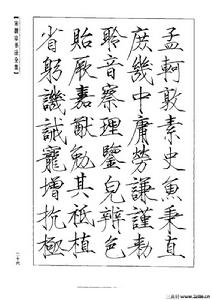 孟軻敦素史魚秉直
庶幾中庸勞謙謹勅
聆音察理鑒皃辯色
貽厥嘉猷勉其祗植
省躬譏誡寵增抗極
【宋徽宗書法全集】